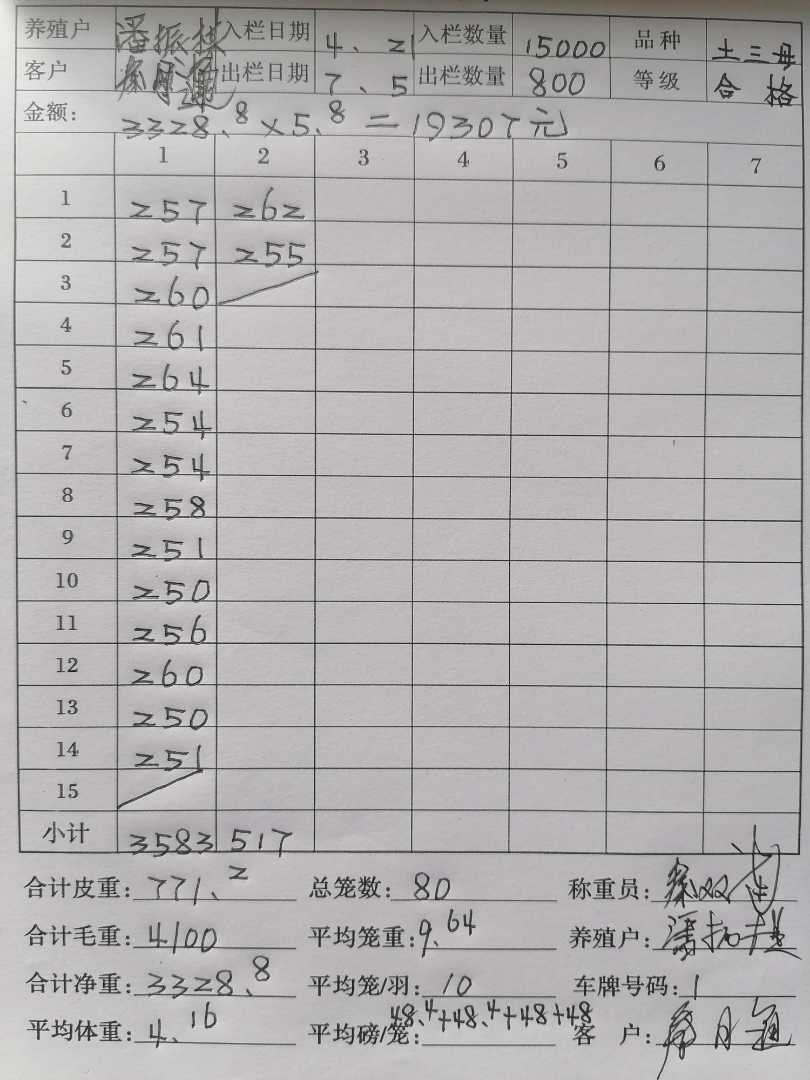 养殖户 潘振 入栏日期 4、21 入栏数量 15000 品种 土三母
客户 出栏日期 7、5 出栏数量 800 等级 合格
金额: 3328.8×5.8=19307元
1 2 3 4 5 6 7
1 257 262
2 257 255
3 260
4 261
5 264
6 254
7 254
8 258
9 251
10 250
11 256
12 260
13 250
14 251
15
小计 3583 517
合计皮重: 771.2 总笼数: 80 称重员:
合计毛重: 4100 平均笼重: 9.64 养殖户: 潘
合计净重: 3328.8 平均笼/羽: 10 车牌号码: 1
平均体重: 4.16 平均磅/笼: 48.4+48.4+48+48 客 户: